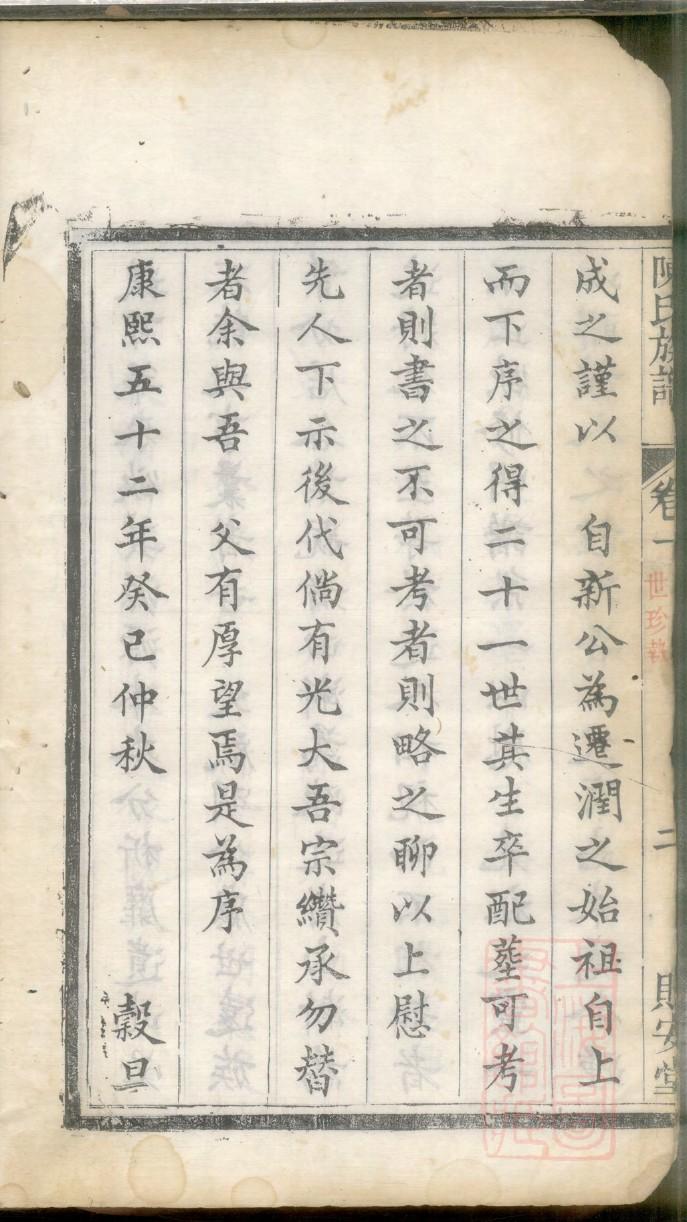 陳氏族譜 卷一 二 貽安堂
世珍執
成之謹以 自新公為遷潤之始祖自上
而下序之得二十一世其生卒配塟可考
者則書之不可考者則略之聊以上慰
先人下示後代倘有光大吾宗纘承勿替
者余與吾 父有厚望焉是為序
康熙五十二年癸巳仲秋 穀旦